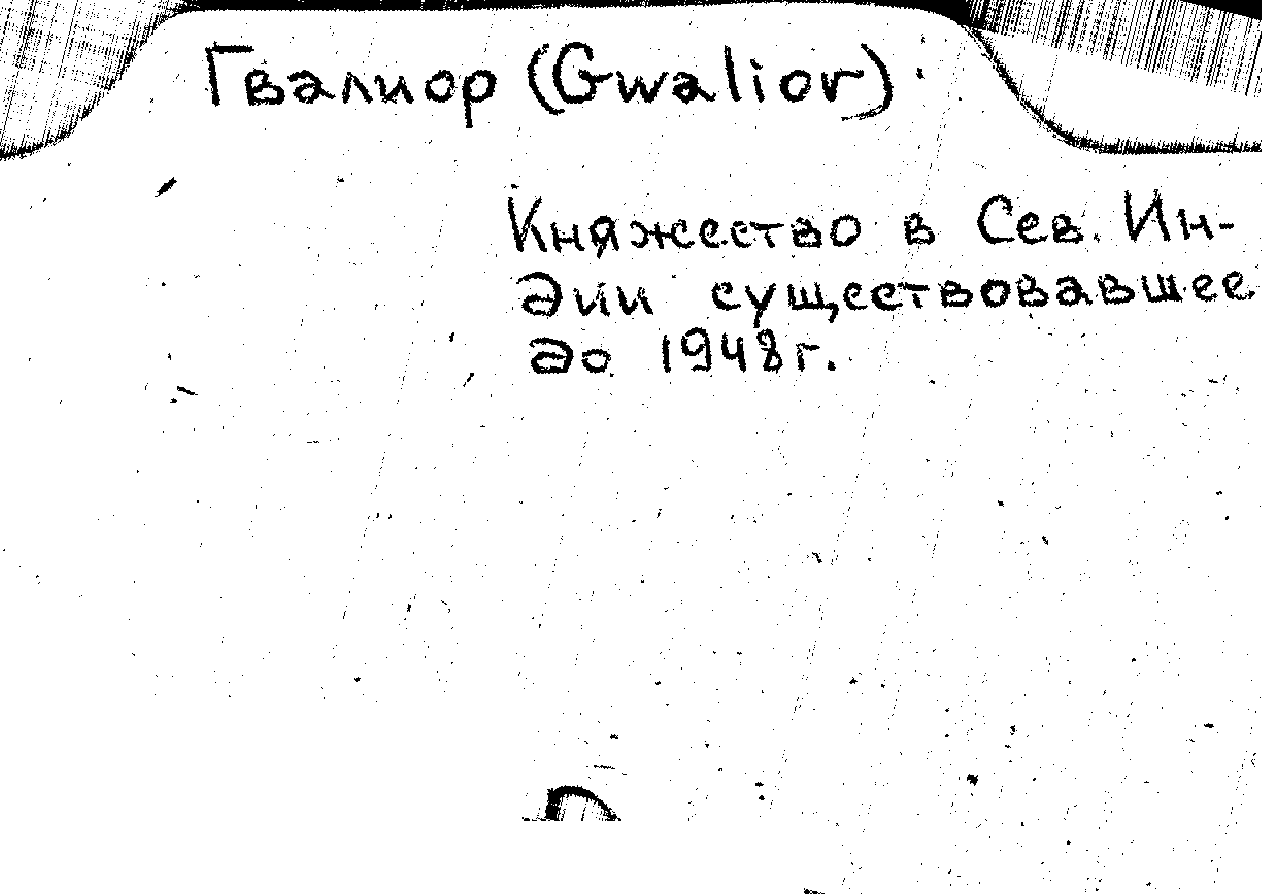 Гвалиор (Gwalior).
Княжество в Сев. Ин-
дии существовавшее
до 1948г.